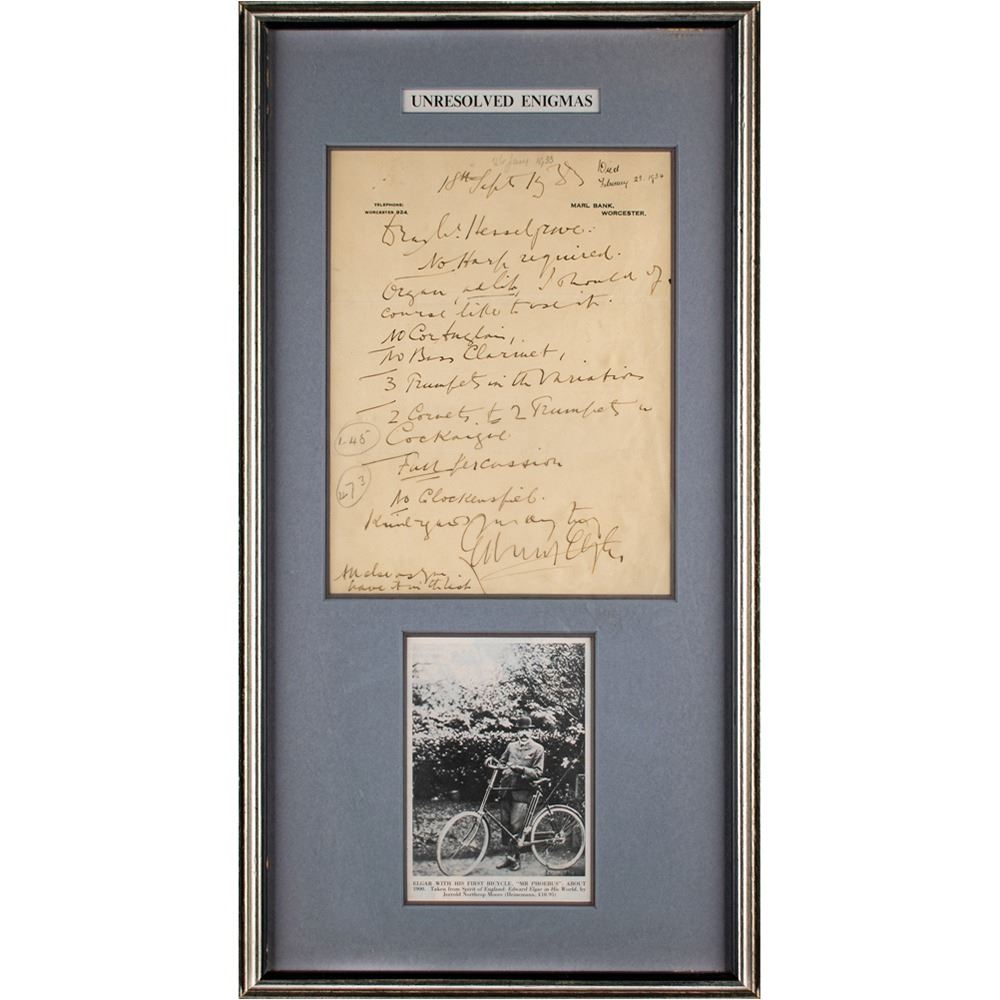 UNRESOLVED ENIGMAS
26 Jany 1933
18th Sept 1933
Died
February 23. 1934
TELEPHONE:
WORCESTER 924.
MARL BANK,
WORCESTER.
Dear Mr. Hesselgrave.
No Harp required.
Organ, ad lib, I should of
course like to use it.
No Cor Anglais,
No Bass Clarinet,
3 Trumpets in the Variations
2 Cornets & 2 Trumpets in
Cockaigne
Full Percussion
No Glockenspiel.
Kind regards
Edward Elgar
have it in the list
ELGAR WITH HIS FIRST BICYCLE, "MR PHOEBUS", ABOUT
1900. Taken from Spirit of England: Edward Elgar in His World, by
Jerrold Northrop Moore (Heinemann, £10.95)